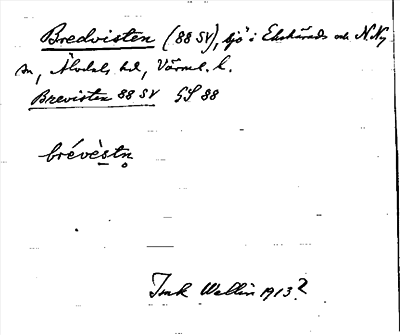 Bredvisten (88 SV), sjö i Ekshärads och N. Ny
sn, Älvdals hd, Värml. l.
Brevisten 88 SV GS 88
brévèstn
Isak Wallin 1913?